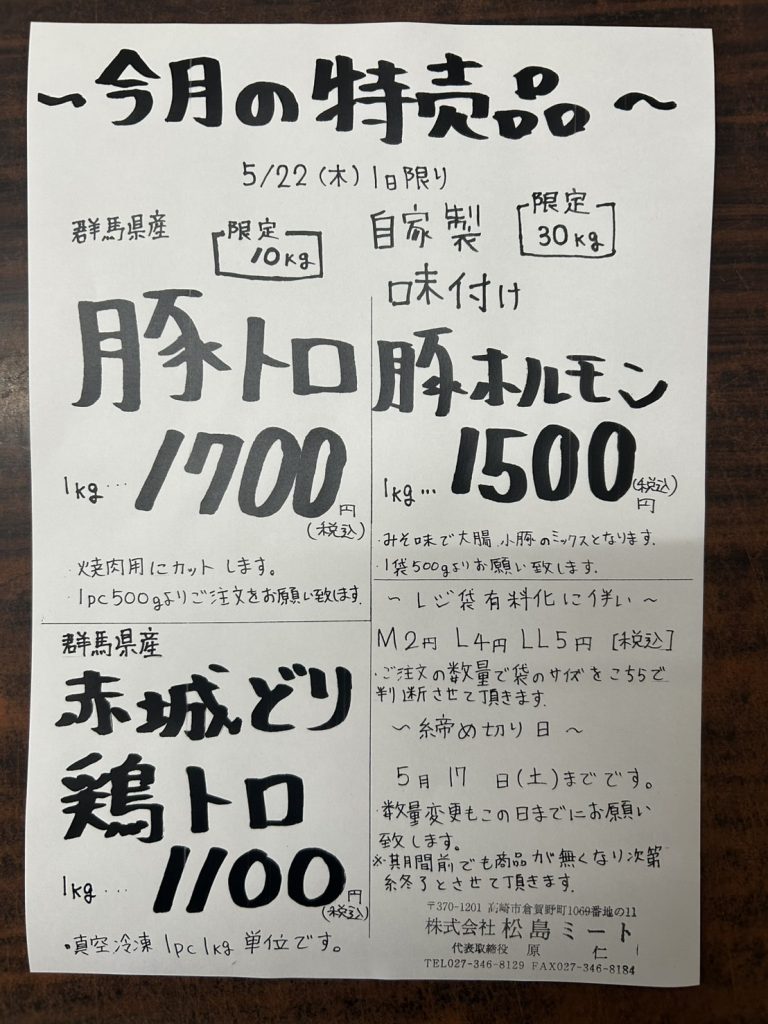 ～今月の特売品～
5/22(木)1日限り
群馬県産
限定
10kg
豚トロ
1kg…1700円
(税込)
・焼肉用にカットします。
・1pc500gよりご注文をお願い致します.
自家製
限定
30kg
味付け
豚ホルモン
1kg…1500円
(税込)
・みそ味で大腸、小腸のミックスとなります.
・1袋500gよりお願い致します.
群馬県産
赤城どり
鶏トロ
1kg…1100円
(税込)
・真空冷凍1pc1kg単位です。
～レジ袋有料化に伴い～
M2円 L4円 LL5円 [税込]
・ご注文の数量で袋のサイズをこちらで
判断させて頂きます.
～締め切り日～
5月17日(土)までです。
・数量変更もこの日までにお願い
致します。
※期間前でも商品が無くなり次第
終了とさせて頂きます.
〒370-1201 高崎市倉賀野町1069番地の11
株式会社 松島ミート
代表取締役 原 仁
TEL027-346-8129 FAX027-346-8184